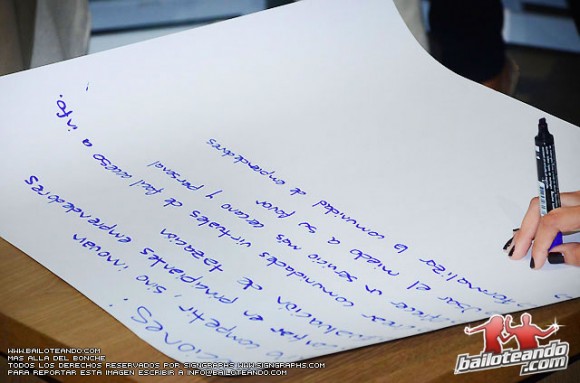 competir, sino
en principiantes emprendedores
de tasación
crear comunidades virtuales de fácil acceso a info.
un servicio más cercano y personal
usar el miedo a su favor
formalizar la comunidad de emprendedores
WWW.BAILOTEANDO.COM
MAS ALLA DEL BONCHE
TODOS LOS DERECHOS RESERVADOS POR SIGNGRAPHS WWW.SIGNGRAPHS.COM
PARA REPORTAR ESTA IMAGEN ESCRIBIR A INFO@BAILOTEANDO.COM
bailoteando.com